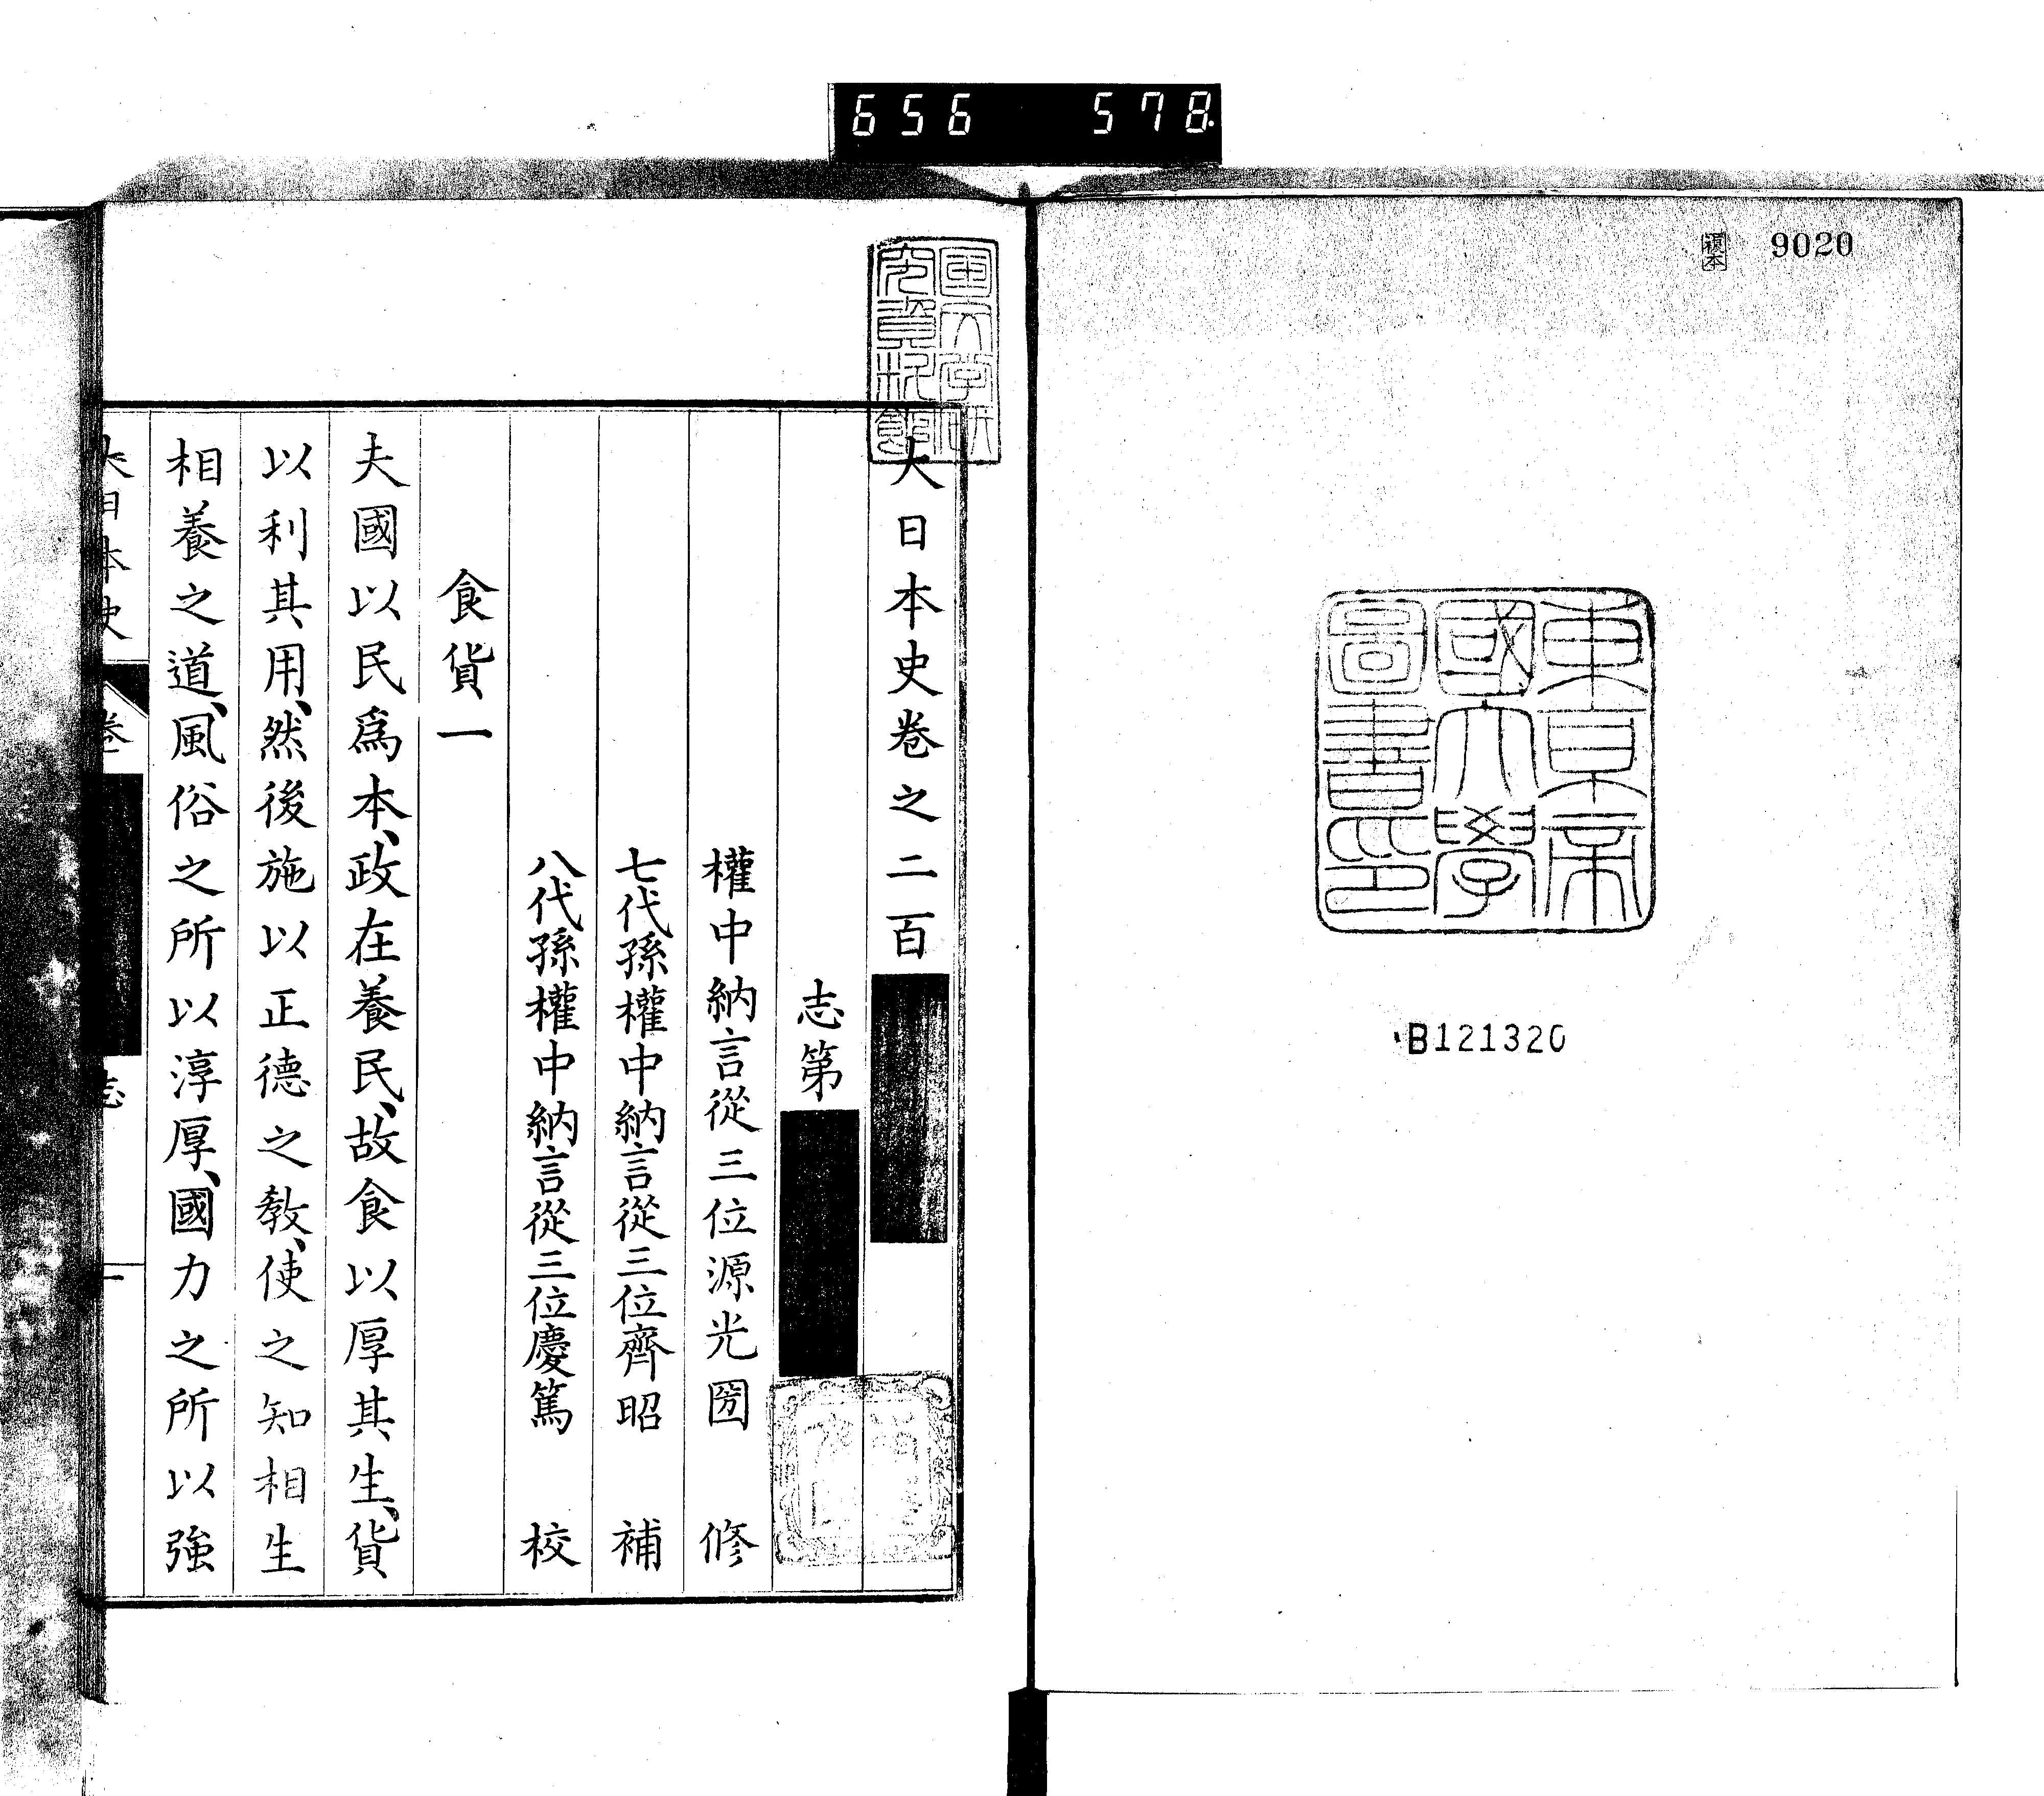 656 578
複本 9020
東京帝
國大學
圖書印
B121320
大日本史卷之二百
志第
權中納言從三位源光圀 修
七代孫權中納言從三位齊昭 補
八代孫權中納言從三位慶篤 校
食貨一
夫國以民爲本、政在養民、故食以厚其生、貨
以利其用、然後施以正德之敎、使之知相生
相養之道、風俗之所以淳厚、國力之所以強
大日本史 卷 志 一